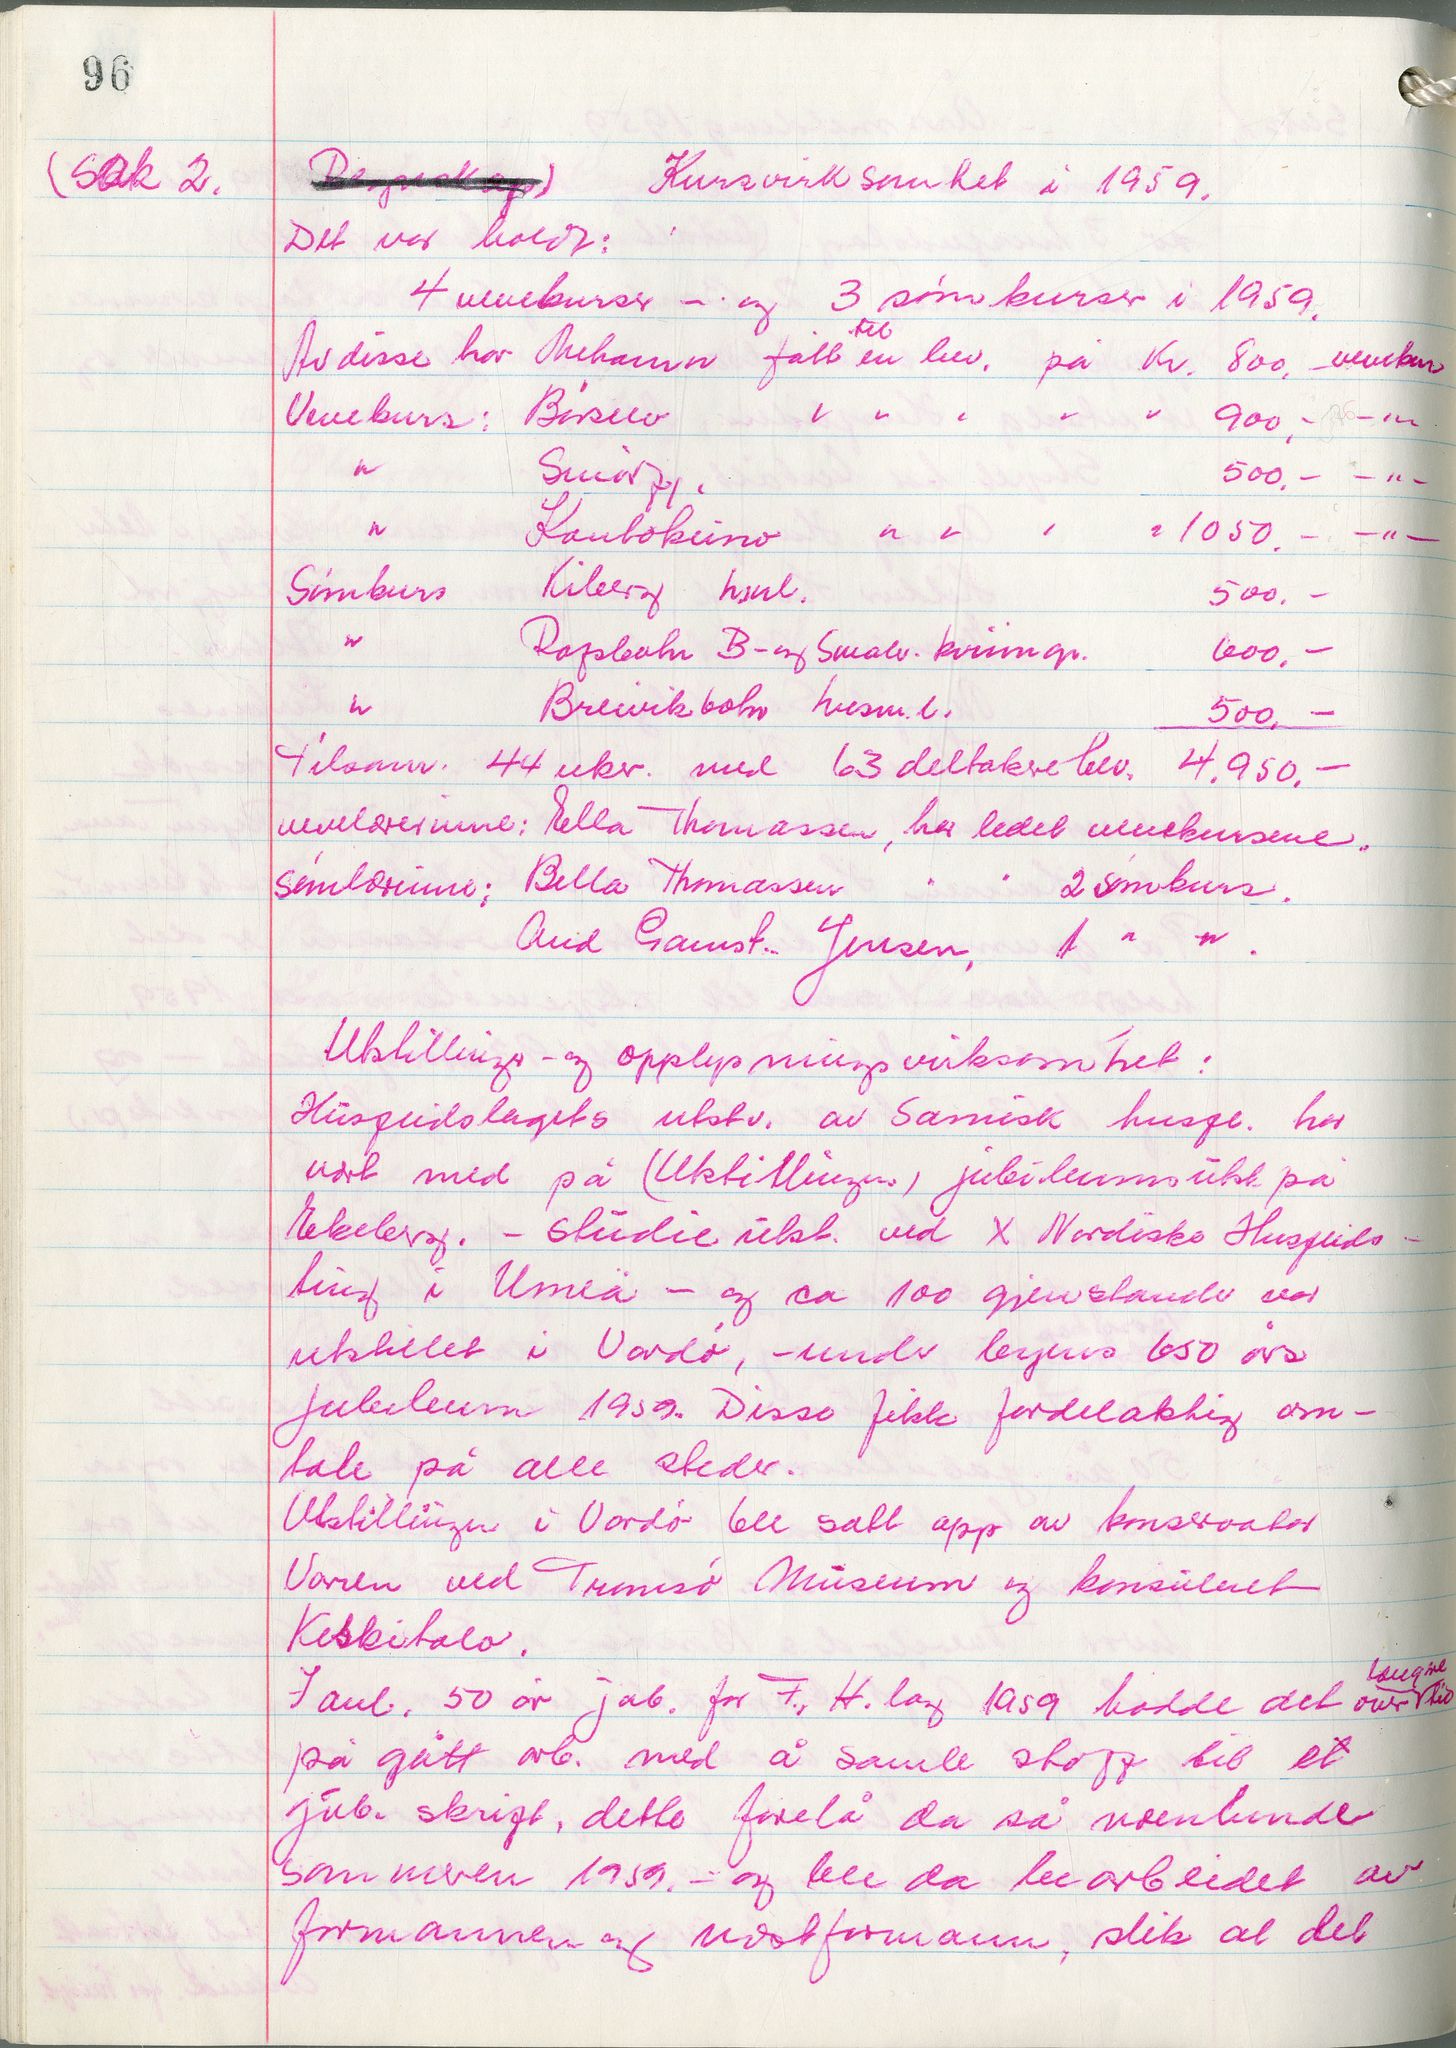 96
(Sak 2. Regnskap) Kursvirksomhet i 1959.
Det var holdt:
4 vevekurser – og 3 sømkurser i 1959.
Av disse har Mehamn fått til en bev. på Kr. 800,- vevekurs
Vevekurs: Børselv " " " " " 900,- -"-
" Smørfj. 500,- -"-
" Kautokeino " " " " 1050,- -"-
Sømkurs Kiberg husml. 500,-
" Rafsbotn B- og Småbr. kvinngr. 600,-
" Breivikbotn husm.l. 500,-
Tilsam. 44 uker. med 63 deltakere bev. 4.950,-
vevelærerinne: Ella Thomassen, har ledet vevekursene.
sømlærinne: Bella Thomassen " " 2 sømkurs.
Aud Gamst-Jensen, 1 " ".
Utstillings- og opplysningsvirksomhet:
Husflidslagets utst. av Samisk husfl. har
vært med på (Utstillingen) jubileumsutst på
Ekeberg. – studieutst. ved X Nordiske Husflids-
ting i Umeä – og ca 100 gjenstander var
utstillet i Vardø, – under byens 650 års
jubileum 1959. Disse fikk fordelaktig om-
tale på alle steder.
Utstillingen i Vardø ble satt opp av konservator
Vorren ved Tromsø Museum og konsulent
Keskitalo.
I anl. 50 år jub. for F. H. lag 1959 hadde det over längre tid
på gått arb. med å samle stoff til et
jub. skrift, dette forelå da så noenlunde
sommeren 1959. – og ble da bearbeidet av
formannen og nestformann, slik at det